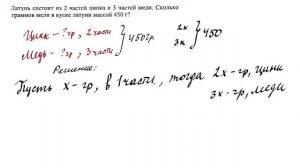 Латунь состоит из 2 частей цинка и 3 частей меди. Сколько
граммов меди в куске латуни массой 450 г?
Цинк – ? гр, 2 части
Медь – ? гр, 3 части
} 450 гр.
2x
3x
} 450
Решение:
Пусть x – гр, в 1 части, тогда 2x – гр, цинк
3x – гр, меди